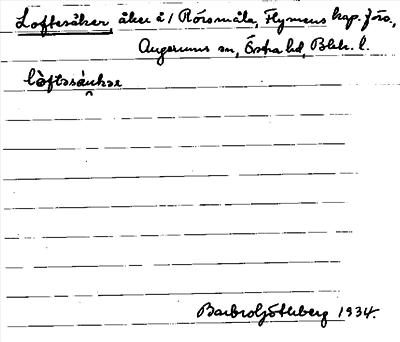 Loftesåker, åker å 1 Rörsmåla, Flymens kap. förs.,
Augerums sn, Östra hd, Blek. l.
Barbro Göthberg 1934.